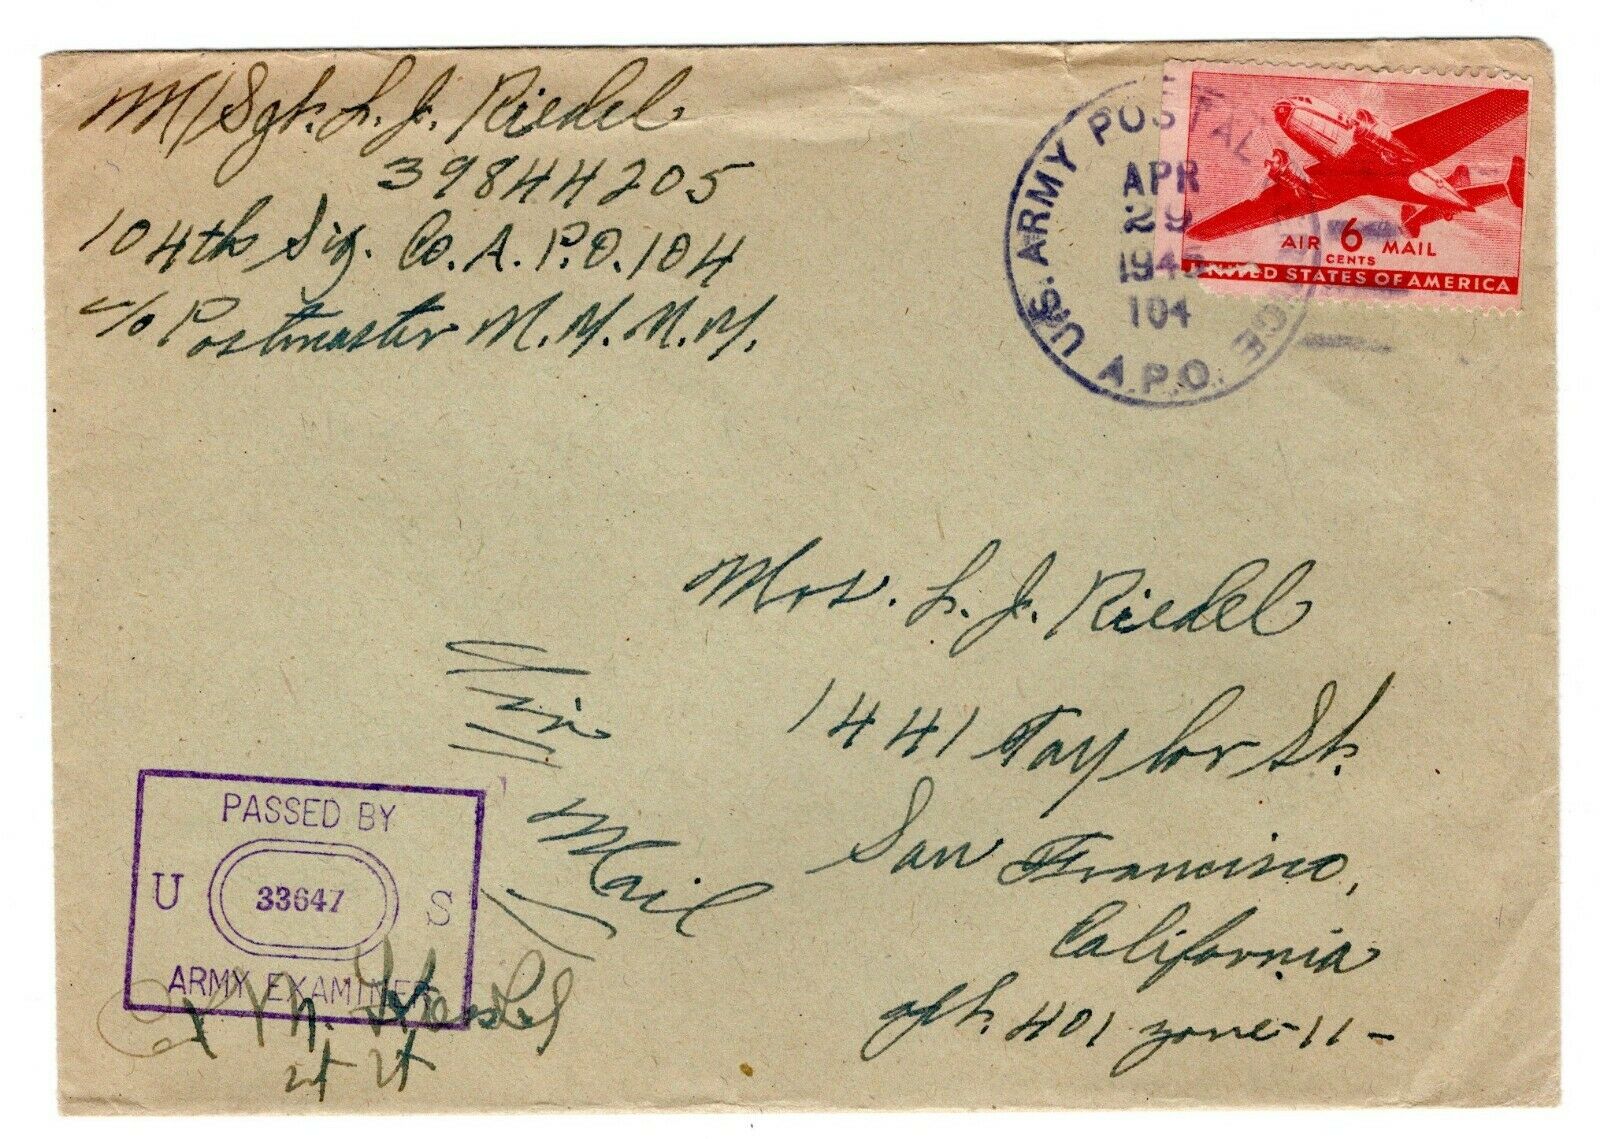 M/Sgt. L. J. Riedel
39844205
104th Sig. Co. A.P.O. 104
c/o Postmaster N.Y. N.Y.
U.S. ARMY POSTAL
APR
29
1945
104
A.P.O.
AIR 6 MAIL
CENTS
UNITED STATES OF AMERICA
Mrs. L. J. Riedel
1441 Taylor St.
San Francisco,
California
apt. 401 zone-11-
Air
Mail
PASSED BY
U 33647 S
ARMY EXAMINER